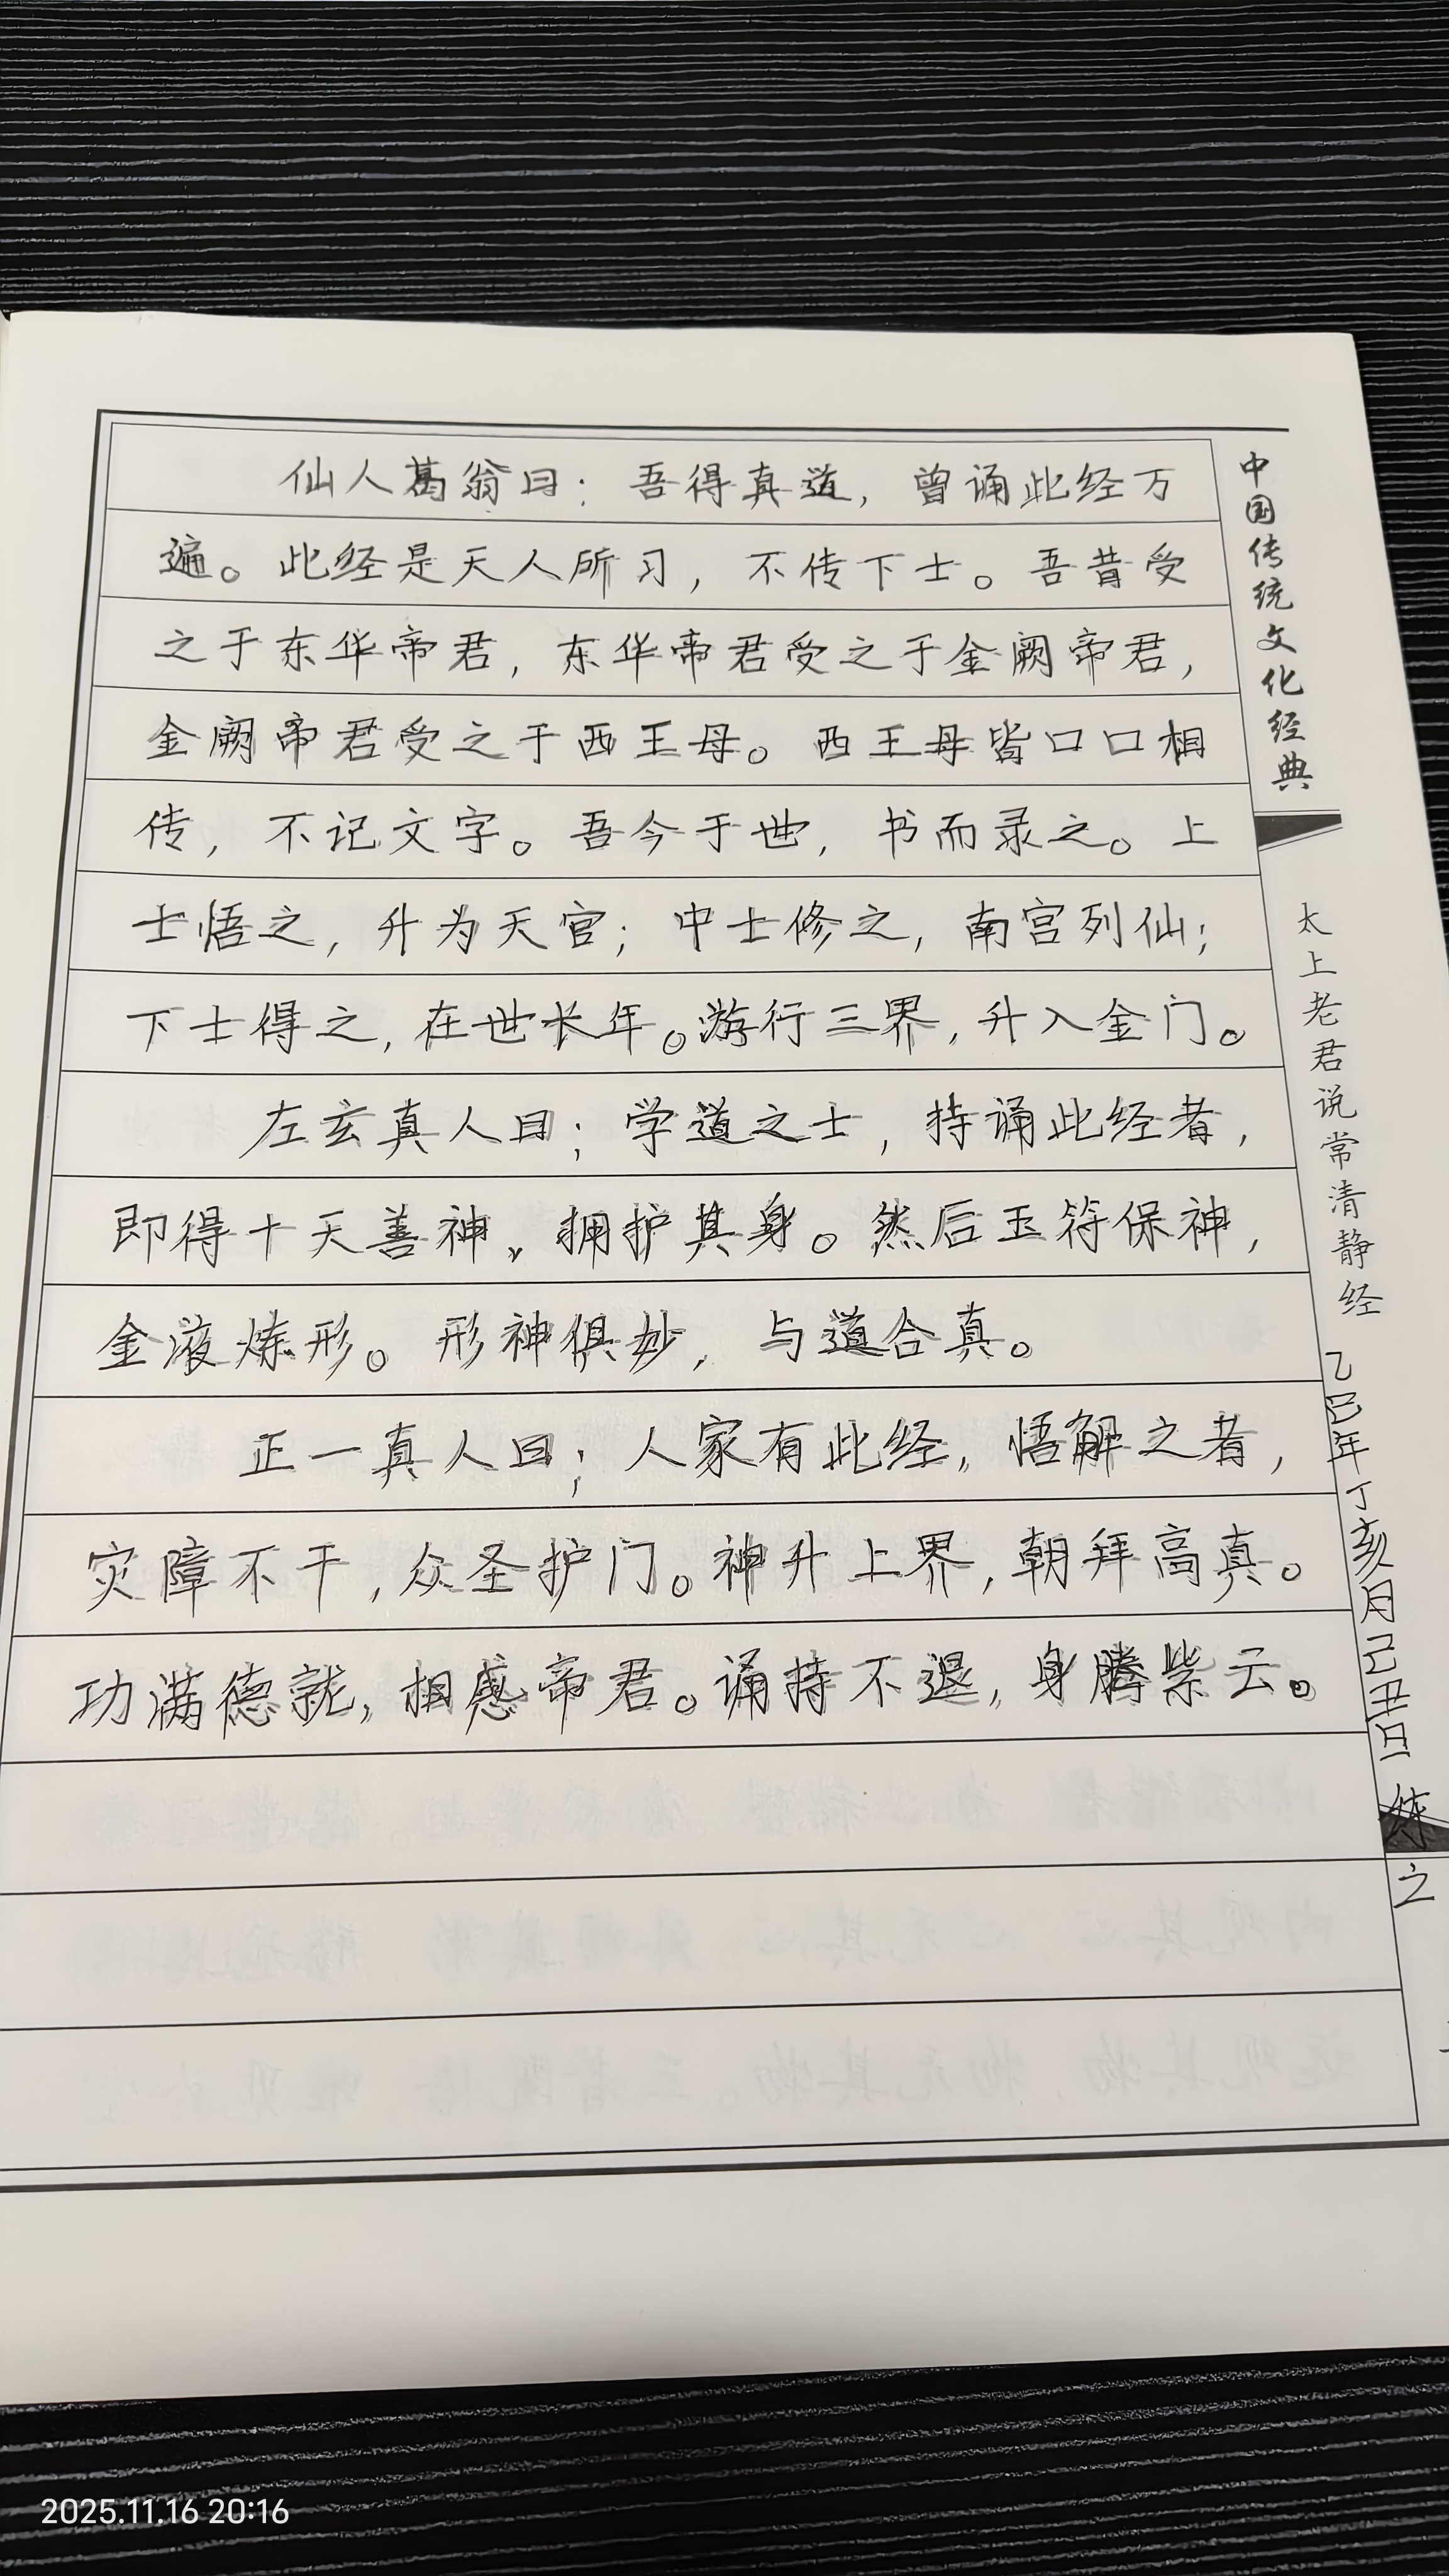 仙人葛翁曰：吾得真道，曾诵此经万
遍。此经是天人所习，不传下士。吾昔受
之于东华帝君，东华帝君受之于金阙帝君，
金阙帝君受之于西王母。西王母皆口口相
传，不记文字。吾今于世，书而录之。上
士悟之，升为天官；中士修之，南宫列仙；
下士得之，在世长年。游行三界，升入金门。
左玄真人曰；学道之士，持诵此经者，
即得十天善神，拥护其身。然后玉符保神，
金液炼形。形神俱妙，与道合真。
正一真人曰；人家有此经，悟解之者，
灾障不干，众圣护门。神升上界，朝拜高真。
功满德就，相感帝君。诵持不退，身腾紫云。
中国传统文化经典
太上老君说常清静经
乙巳年丁亥月己丑日 练之
2025.11.16 20:16